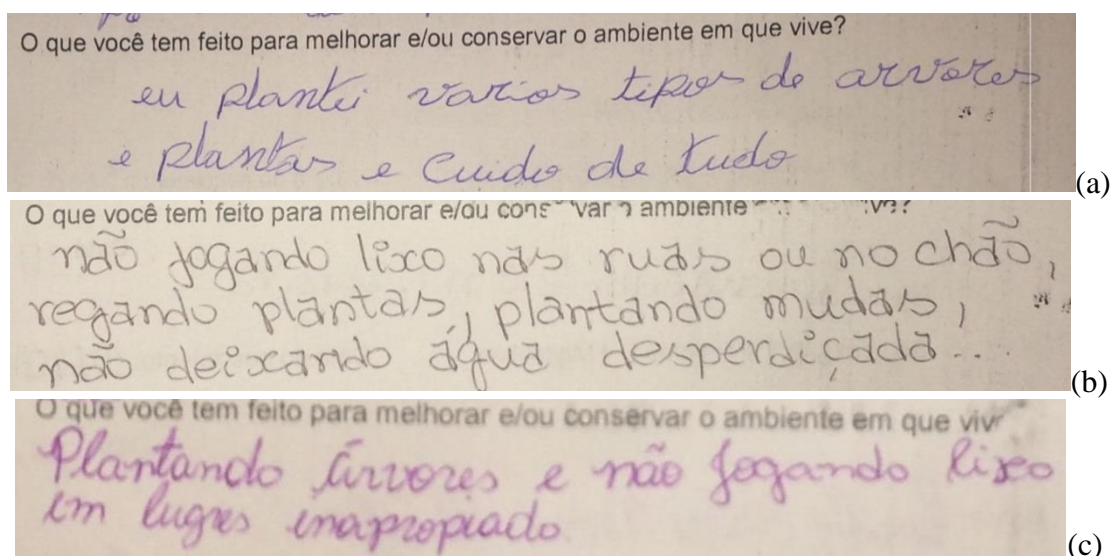 O que você tem feito para melhorar e/ou conservar o ambiente em que vive?
eu plantei varios tipos de arvores
e plantas e cuido de tudo
(a)
O que você tem feito para melhorar e/ou var ambiente
não jogando lixo nas ruas ou no chão,
regando plantas, plantando mudas,
não deixando água desperdiçada...
(b)
O que você tem feito para melhorar e/ou conservar o ambiente em que viv
Plantando árvores e não jogando lixo
em lugres inapropiado
(c)